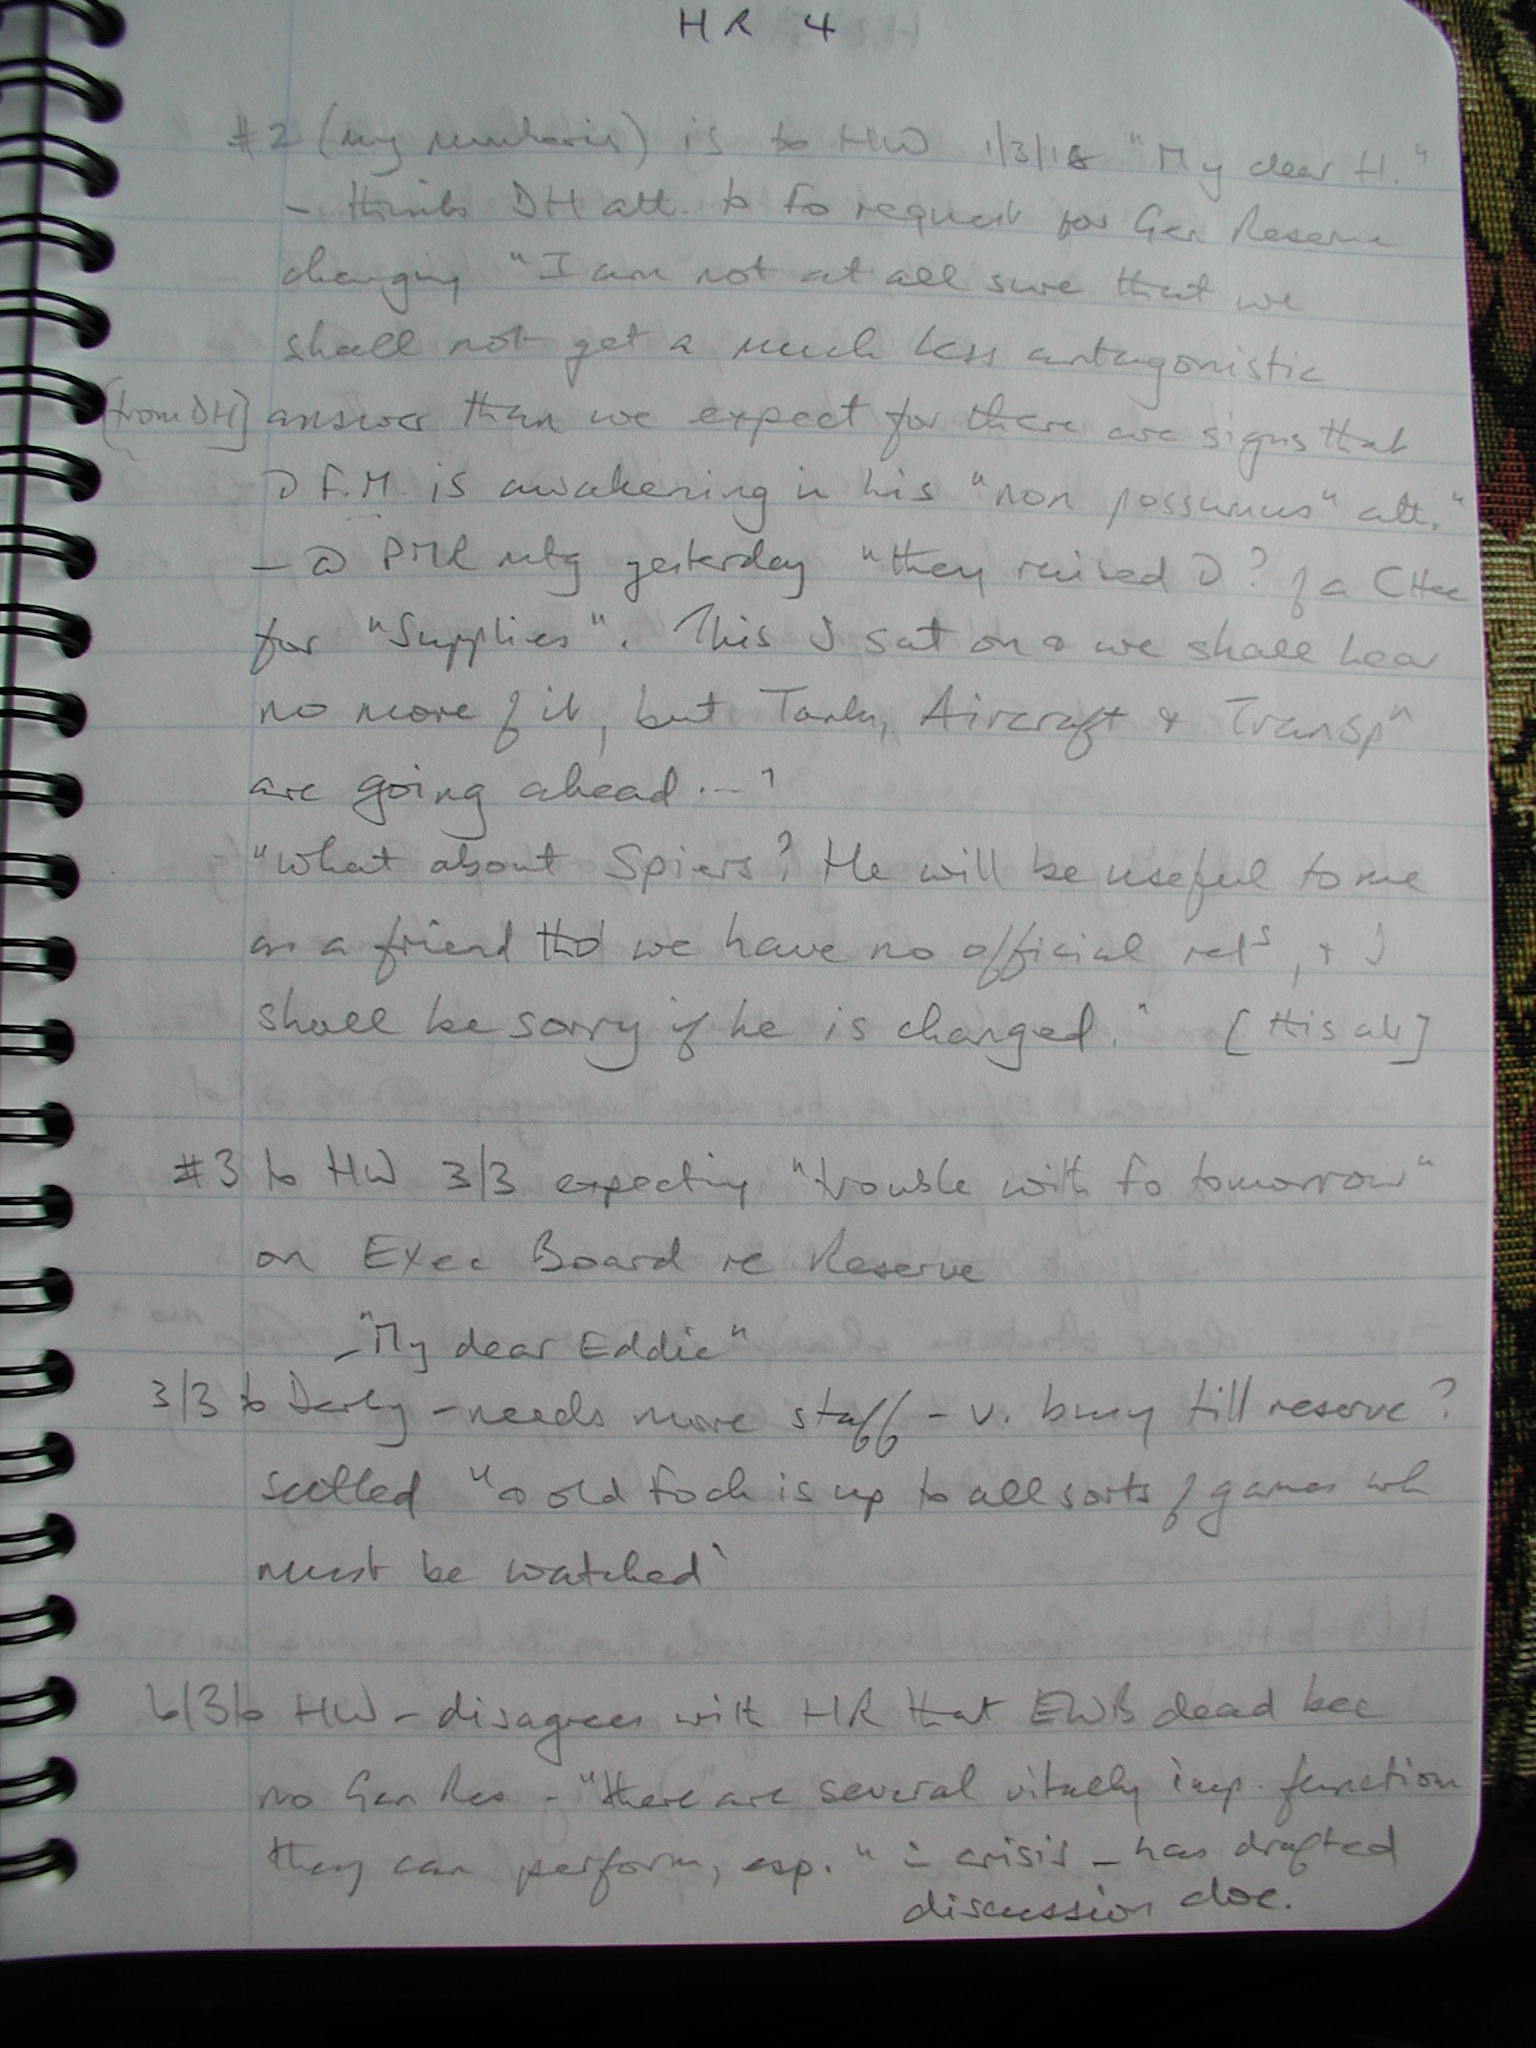 HR 4
#2 (my numbering) is to HW 1/3/18 "My dear H."
- thinks DH att. to Fo request for Gen Reserve
changing "I am not at all sure that we
shall not get a much less antagonistic
[from DH] answer than we expect for there are signs that
F.M. is awakening in his "non possumus" att."
- @ PMR mtg yesterday "they raised ? of a Cttee
for "Supplies". This I sat on & we shall hear
no more of it, but Tanks, Aircraft & Transpn
are going ahead ..."
"What about Spiers? He will be useful to me
as a friend tho we have no official rels, & I
shall be sorry if he is changed." [this all]
#3 to HW 3/3 expecting "trouble with Fo tomorrow"
on Exec Board re Reserve
- "My dear Eddie"
3/3 to Derby - needs more staff - v. busy till reserve ?
settled "& old Foch is up to all sorts of games wh
must be watched"
6/3 to HW - disagrees with HR that EWB dead bec
no Gen Res - "there are several vitally imp. function
they can perform, esp." in crisis - has drafted
discussion doc.